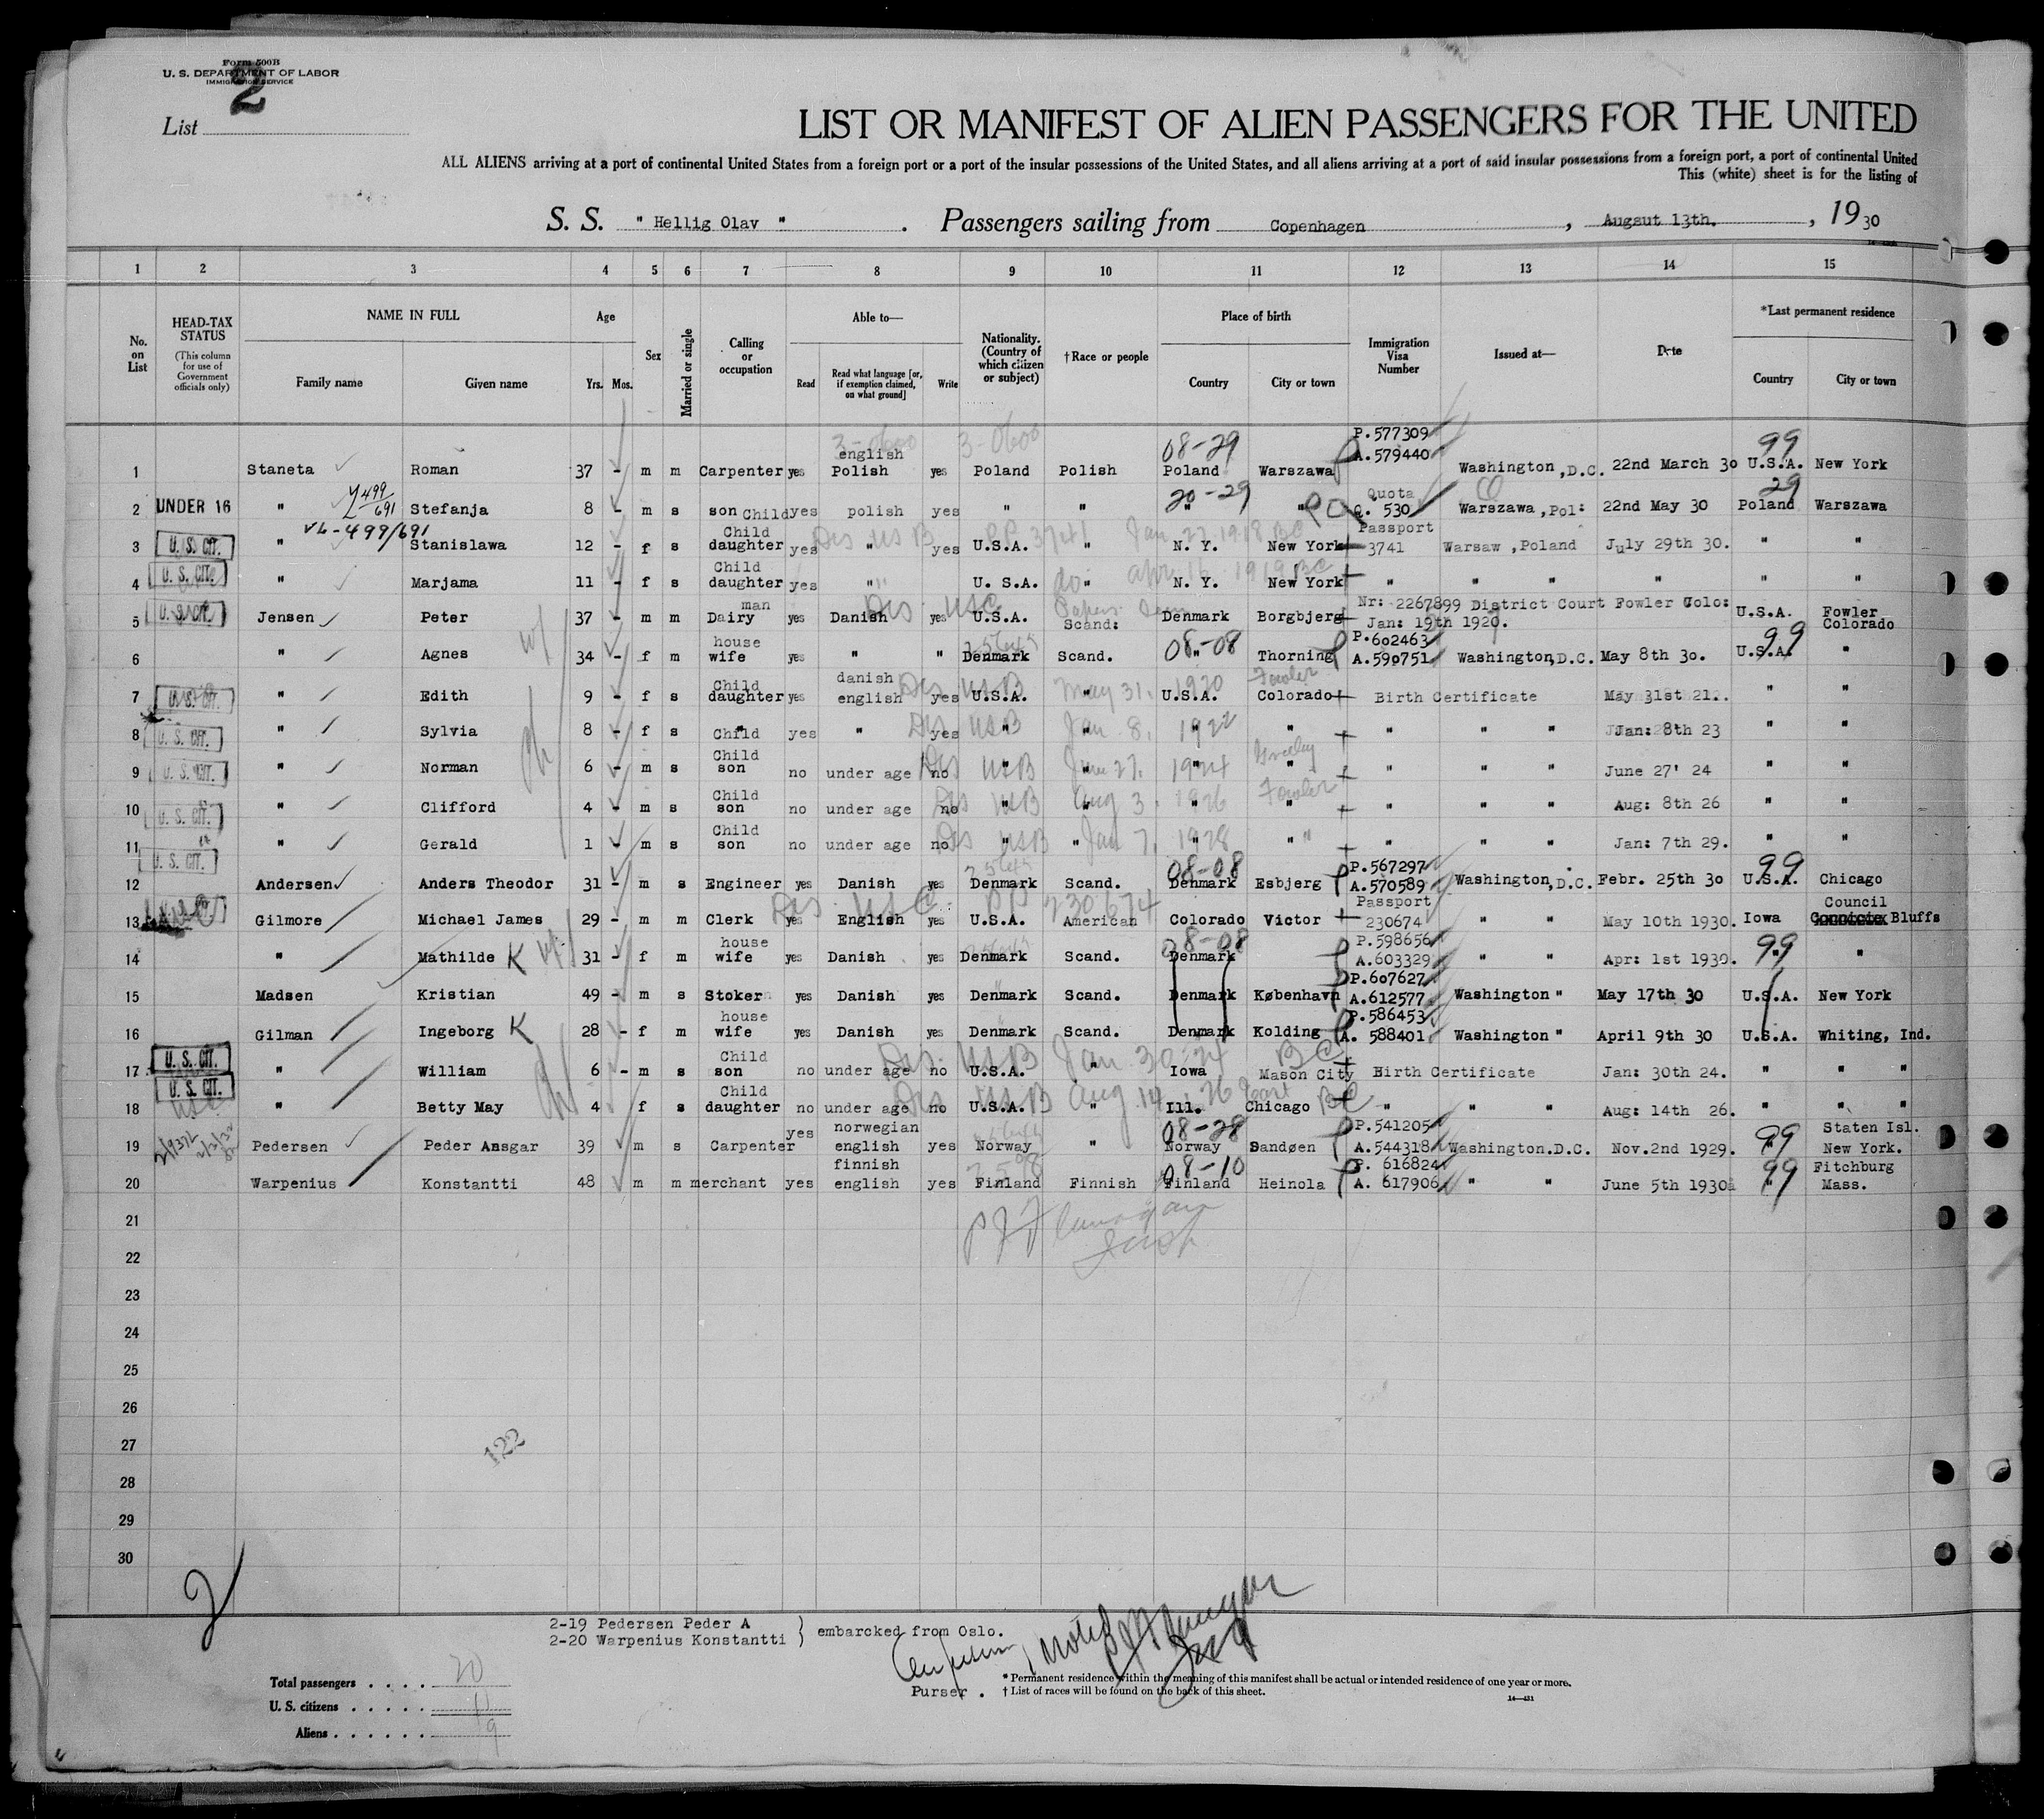 Form 500B
U. S. DEPARTMENT OF LABOR
IMMIGRATION SERVICE
2
List
LIST OR MANIFEST OF ALIEN PASSENGERS FOR THE UNITED
ALL ALIENS arriving at a port of continental United States from a foreign port or a port of the insular possessions of the United States, and all aliens arriving at a port of said insular possessions from a foreign port, a port of continental United
This (white) sheet is for the listing of
S. S. " Hellig Olav " . Passengers sailing from Copenhagen , Augaut 13th. , 1930
1 2 3 4 5 6 7 8 9 10 11 12 13 14 15
No. on List
HEAD-TAX STATUS (This column for use of Government officials only)
NAME IN FULL Family name Given name
Age Yrs. Mos.
Sex
Married or single
Calling or occupation
Able to— Read Read what language [or, if exemption claimed, on what ground] Write
Nationality. (Country of which citizen or subject)
†Race or people
Place of birth Country City or town
Immigration Visa Number
Issued at—
Date
*Last permanent residence Country City or town
3-0600 3-0600 08-29 99
1 Staneta Roman 37 - m m Carpenter yes english Polish yes Poland Polish Poland Warszawa P.577309 A.579440 Washington,D.C. 22nd March 30 U.S.A. New York
20-29 29
2 UNDER 16 " 499/691 Stefanja 8 - m s son Child yes polish yes " " " " Quota Q. 530 Warszawa,Pol: 22nd May 30 Poland Warszawa
VL-499/691
3 U. S. CIT. " Stanislawa 12 - f s Child daughter yes " yes U.S.A. " N. Y. New York Passport 3741 Warsaw,Poland July 29th 30. " "
Des US B PP 3741 Jan. 27. 1918 BC
4 U. S. CIT. " Marjama 11 - f s Child daughter yes " U. S.A. " N. Y. New York " " " " " "
do apr. 16 1919 BC
5 U. S. CIT. Jensen Peter 37 - m m Dairy man yes Danish yes U.S.A. Scand: Denmark Borgbjerg Nr: 2267899 District Court Fowler Colo: Jan: 19th 1920. U.S.A. Fowler Colorado
Des USC Papers
6 " Agnes 34 - f m house wife yes " " Denmark Scand. " Thorning P.602463 A.590751 Washington,D.C. May 8th 30. U.S.A. "
08-08 99
7 U. S. CIT. " Edith 9 - f s Child daughter yes danish english yes U.S.A. U.S.A. Colorado Birth Certificate May 31st 21. " "
Des US B May 31. 1920 Fowler
8 U. S. CIT. " Sylvia 8 - f s " Child yes " yes " " " " " " Jan: 8th 23 " "
Des US B Jan 8. 1922
9 U. S. CIT. " Norman 6 - m s Child son no under age no " " " " " " " June 27' 24 " "
Des US B June 27. 1924 Greeley
10 U. S. CIT. " Clifford 4 - m s Child son no under age no " " " " " " " Aug: 8th 26 " "
Des US B Aug 3. 1926 Fowler
11 U. S. CIT. " Gerald 1 - m s Child son no under age no " " " " " " Jan: 7th 29. " "
Des US B Jan 7. 1928 "
12 Andersen Anders Theodor 31 - m s Engineer yes Danish yes Denmark Scand. Denmark Esbjerg P.567297 A.570589 Washington,D.C. Febr. 25th 30 U.S.A. Chicago
08-08 99
13 Gilmore Michael James 29 - m m Clerk yes English yes U.S.A. American Colorado Victor Passport 230674 " " May 10th 1930. Iowa Council Bluffs
Des USC PP 230674
14 " Mathilde K 31 - f m house wife yes Danish yes Denmark Scand. Denmark P.598656 A.603329 " " Apr: 1st 1930. " "
08-08 99
15 Madsen Kristian 49 - m s Stoker yes Danish yes Denmark Scand. Denmark København P.607627 A.612577 Washington " May 17th 30 U.S.A. New York
16 Gilman Ingeborg K 28 - f m house wife yes Danish yes Denmark Scand. Denmark Kolding P.586453 A. 588401 Washington " April 9th 30 U.S.A. Whiting, Ind.
17 U. S. CIT. " William 6 - m s Child son no under age no U.S.A. " Iowa Mason City Birth Certificate Jan: 30th 24. " " "
Des. US B Jan 30-24 BC
18 U. S. CIT. " Betty May 4 f s Child daughter no under age no U.S.A. " Ill. Chicago " " " Aug: 14th 26. " " "
Des US B Aug. 14. 26 BC
19 Pedersen Peder Ansgar 39 m s Carpenter yes norwegian english yes Norway " Norway Sandøen P.541205 A.544318 Washington.D.C. Nov.2nd 1929. " Staten Isl. New York.
08-28 99
20 Warpenius Konstantti 48 m m merchant yes finnish english yes Finland Finnish Finland Heinola P. 616824 A. 617906 " " June 5th 1930 " Fitchburg Mass.
08-10 99
21
22
23
24
25
26
27
122
28
29
30
2
2-19 Pedersen Peder A
2-20 Warpenius Konstantti ) embarcked from Oslo.
Purser .
* Permanent residence within the meaning of this manifest shall be actual or intended residence of one year or more.
† List of races will be found on the back of this sheet.
14—431
Total passengers . . . . 20
U. S. citizens . . . . .
Aliens . . . . . . 9